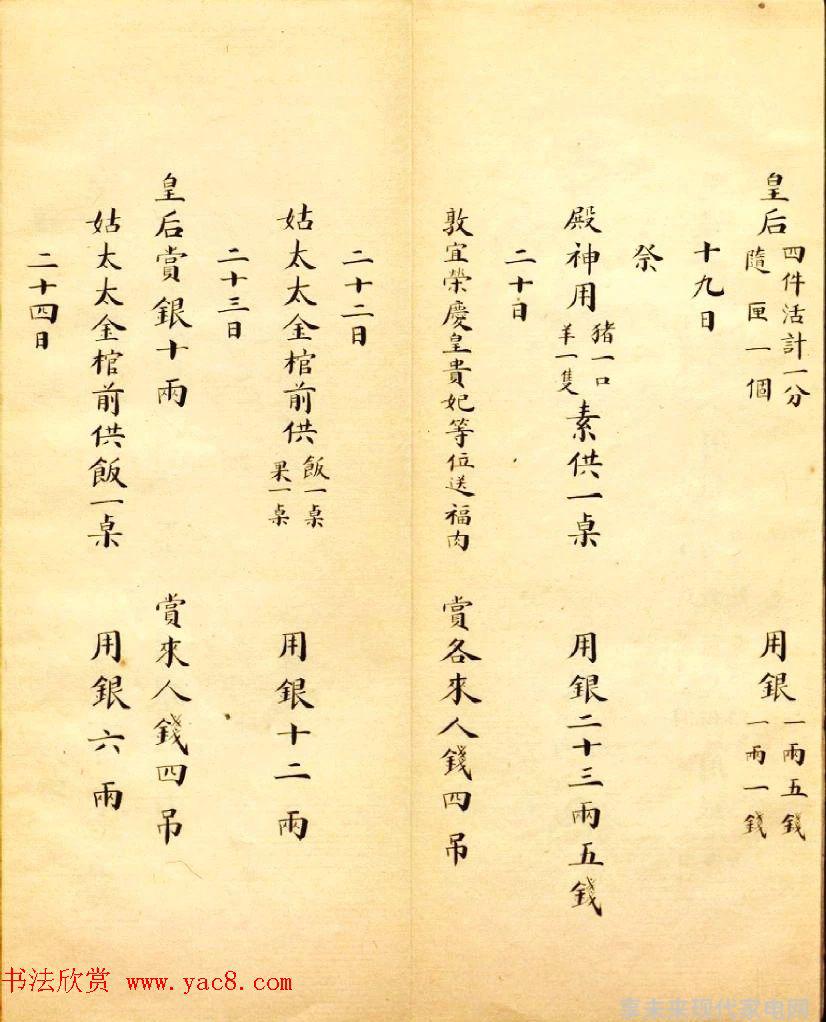 皇后 四件活計一分 隨匣一個 用銀 一兩五錢 一兩一錢
十九日
祭
殿神用 豬一口 羊一隻 素供一桌 用銀二十三兩五錢
二十日
敦宜榮慶皇貴妃等位送福肉 賞各來人錢四吊
二十二日
姑太太金棺前供 飯一桌 果一桌 用銀十二兩
二十三日
皇后賞銀十兩 賞來人錢四吊
姑太太金棺前供飯一桌 用銀六兩
二十四日
书法欣赏 www.yac8.com
享未来现代家电网